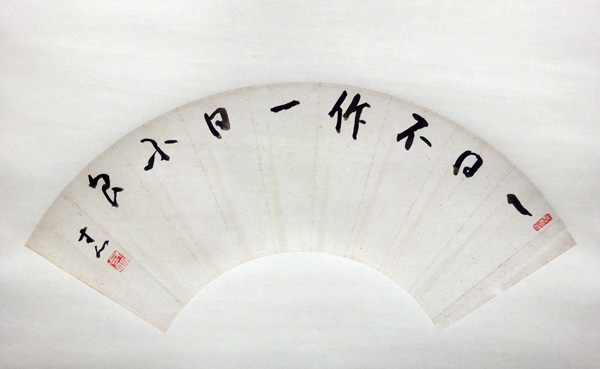 一日不作一日不食